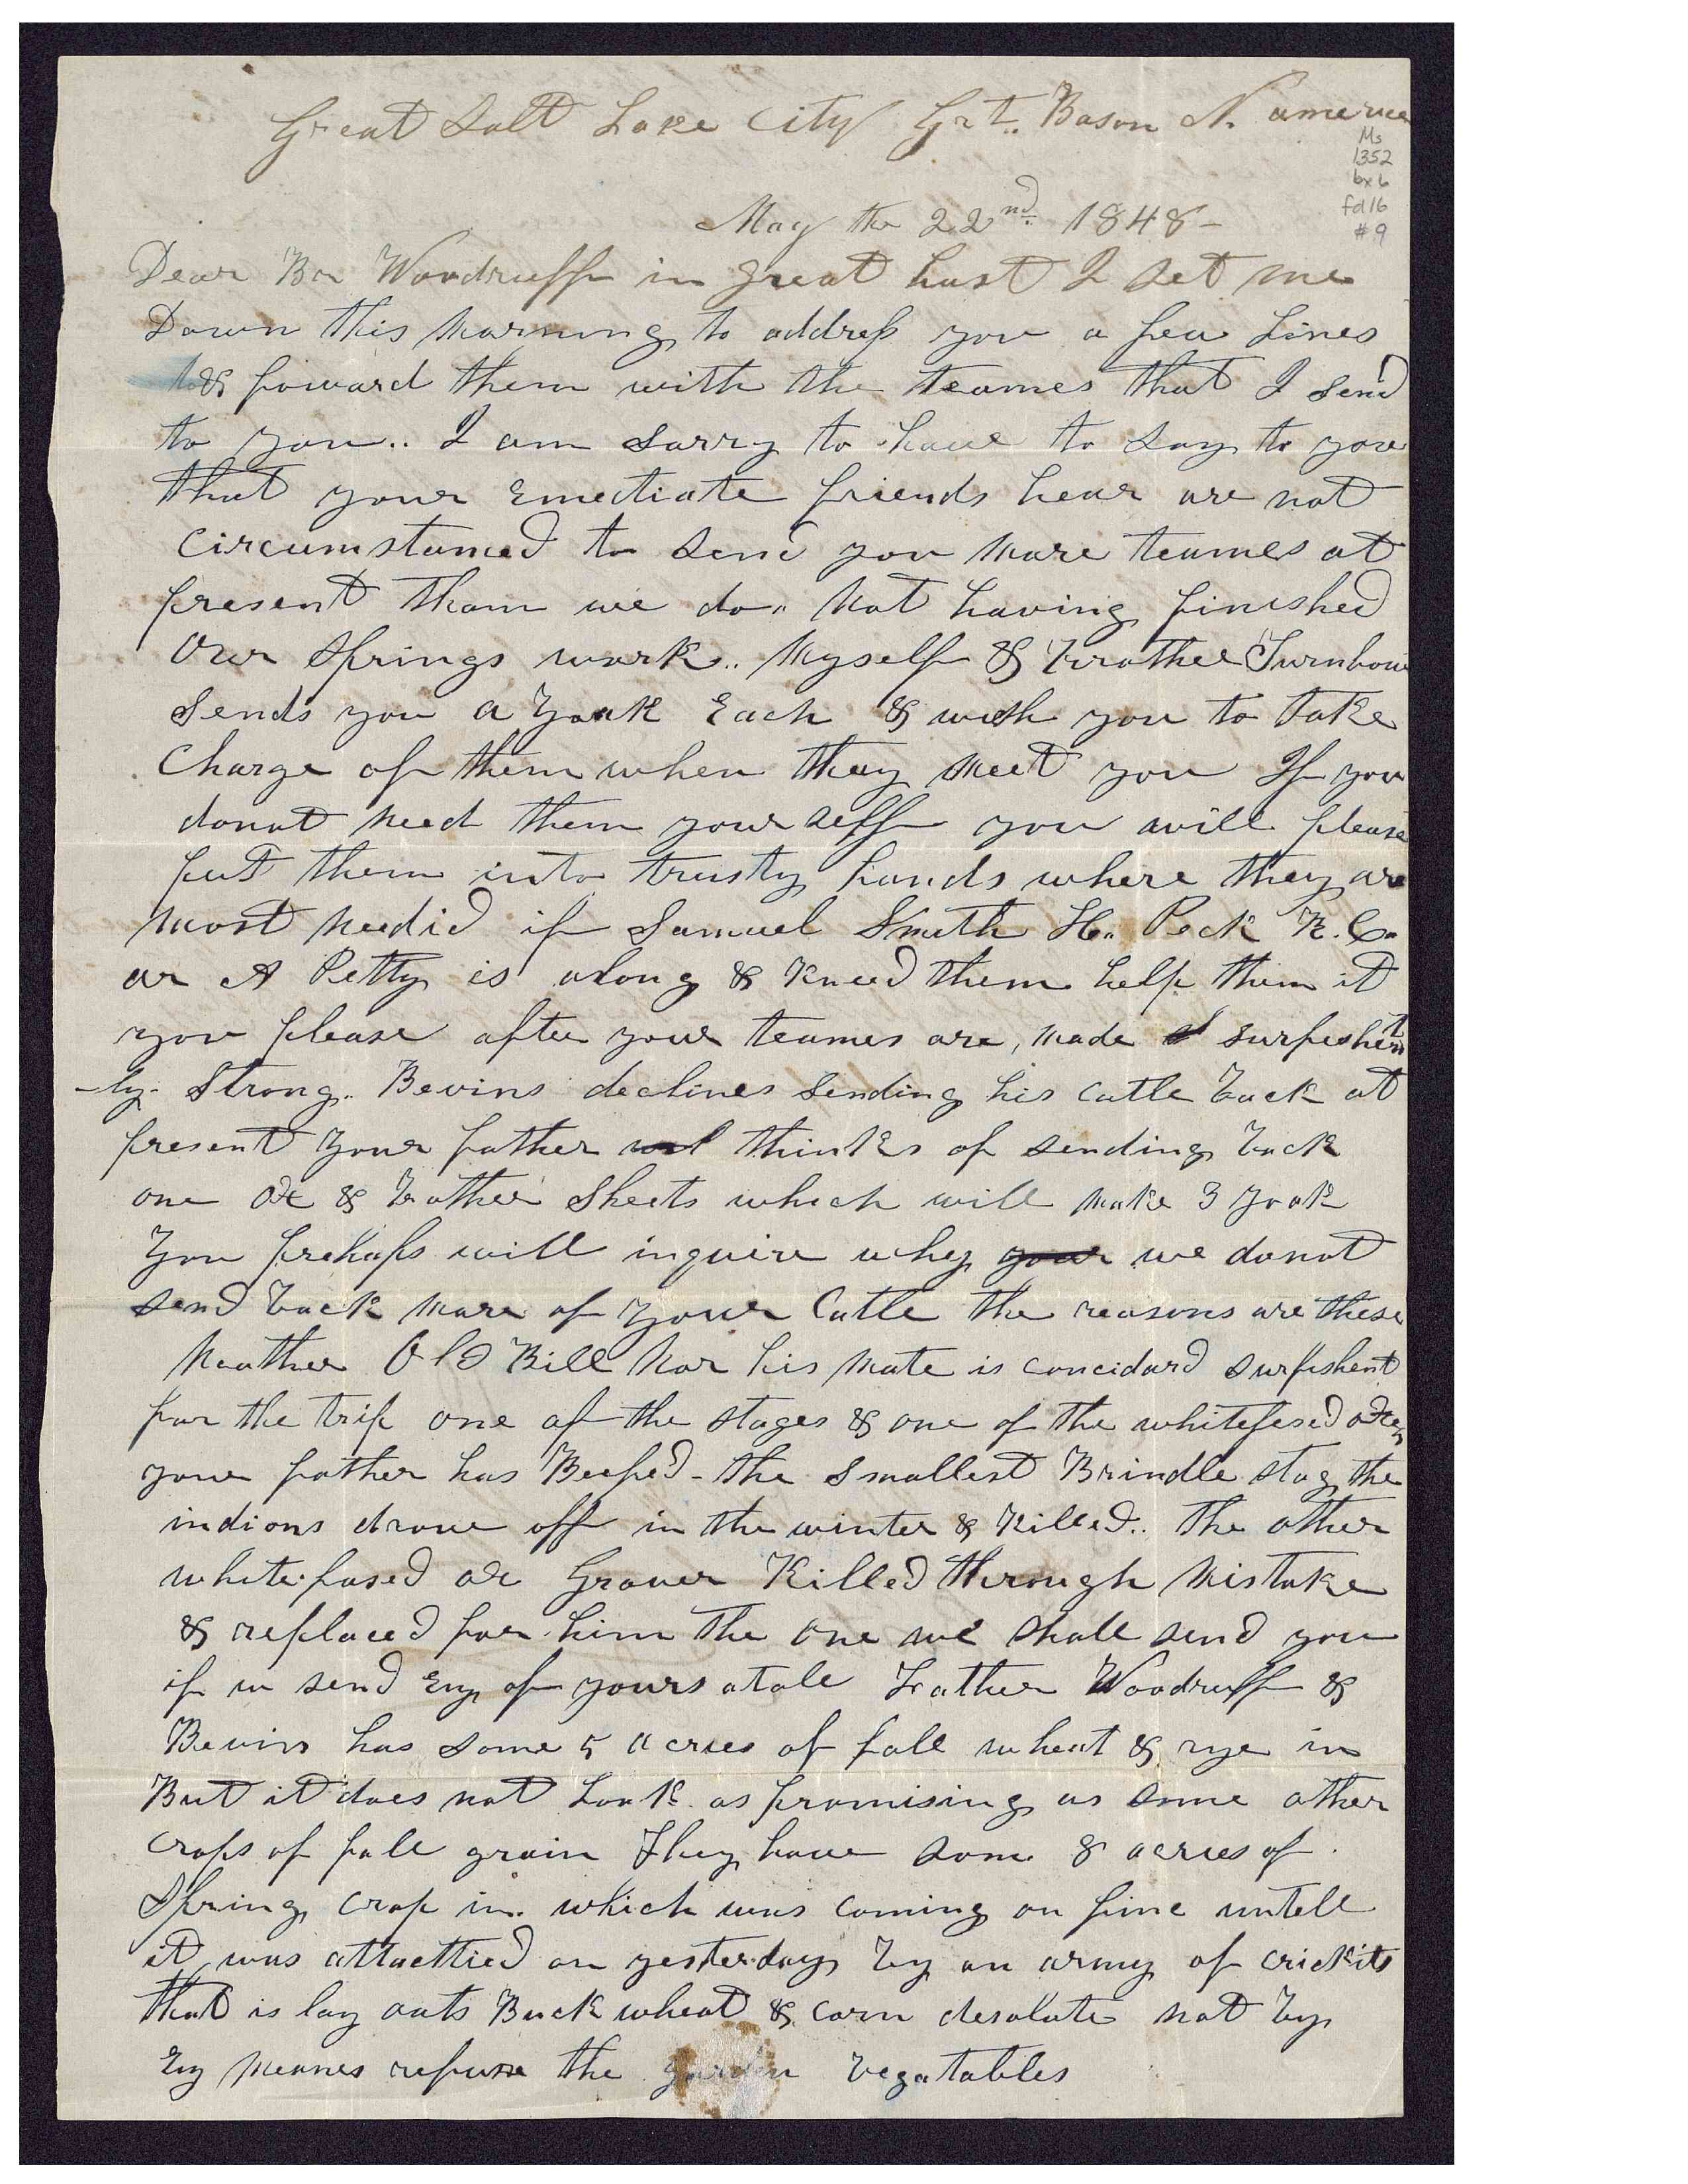 Great Salt Lake City Grt. Bason N. America
Ms
1352
bx 6
fd 16
#9
May the 22nd. 1848-
Dear Br Woodruff in great hast I set me
Down this morning to address you a few Lines
& foward them with the teames that I send
to you.. I am sorry to have to say to you
that your Emediate friends hear are not
circumstanced to send you more teames at
present than we do.. not having finished
our springs work.. Myself & brother Turnbow
sends you a yoak Each & wish you to take
charge of them when they meet you If you
donot need them your self you will please
put them into trusty hands where they are
most needid if Samuel Smith H. Peck
or A Petty is along & kneed them help them if
you please after your teames are, made surfishent
-ly. strong.. Bevins declines sending his cattle back at
present your father thinks of sending back
one ox & brother Sheets which will make 3 yoak
You prehaps will inquire why your we donot
send back more of your Cattle the reasons are these
neather Old Bill nor his mate is concidard surfishent
for the trip one of the stages & one of the whitefesed oxen
your father has Beefed - the smallest Brindle stag the
indions drove off in the winter & killed.. the other
white.fased ox Grover Killed through mistake
& replaced for him the one we shall send you
if we send Eny of yours atall Father Woodruff &
Bevins has some 5 acres of fall wheat & rye in
But it does not Look as promising as some other
crops of fall grain They have some 8 acres of
Spring crop in. which was coming on fine untell
it was attacttied on yesterday by an army of crickits
that is lay oats Buckwheat & corn desolate not by
Eny meanes refuse the garden vegatables